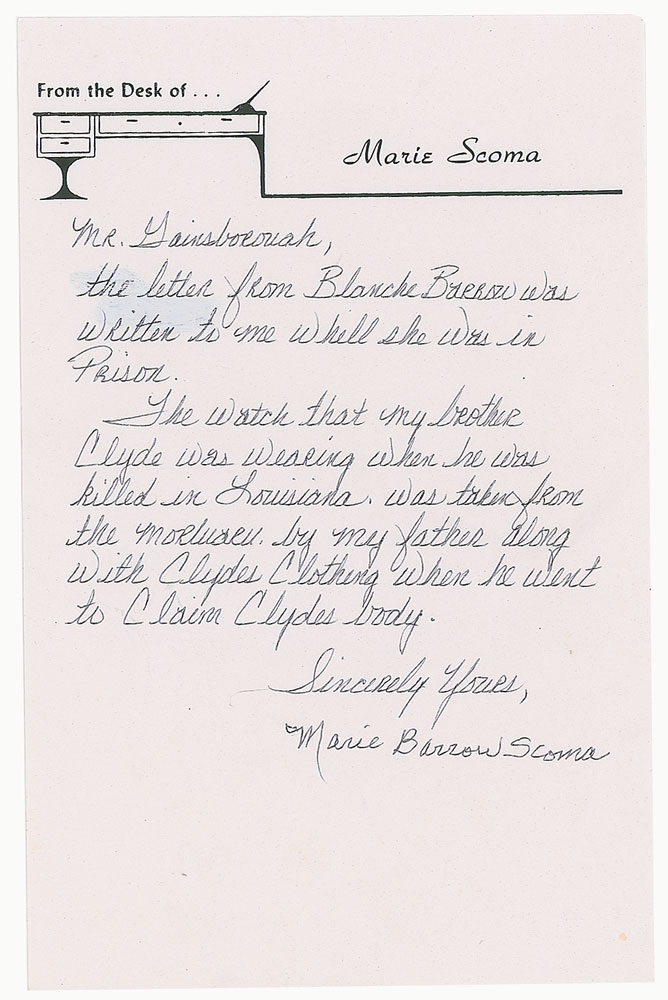 From the Desk of . . .
Marie Scoma
Mr. Gainsborouah,
the letter from Blanche Barrow was
written to me whell she was in
Prison.
The watch that my brother
Clyde was wearing when he was
killed in Louisiana. was taken from
the mortuary. by my father along
with Clydes Clothing when he went
to Claim Clydes body.
Sincerely Yours,
Marie Barrow Scoma